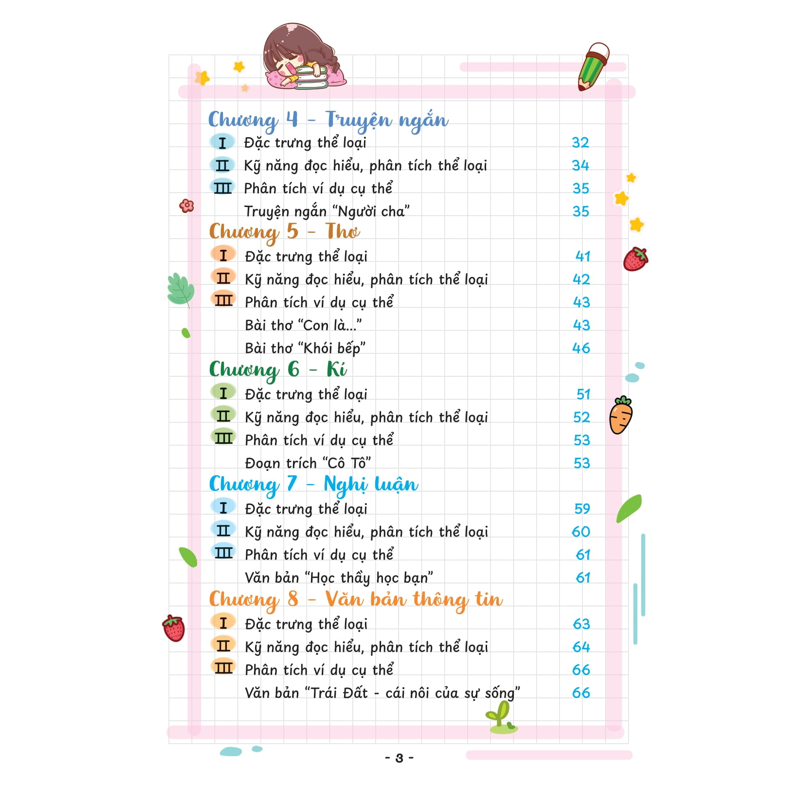 Chương 4 - Truyện ngắn
I Đặc trưng thể loại 32
II Kỹ năng đọc hiểu, phân tích thể loại 34
III Phân tích ví dụ cụ thể 35
Truyện ngắn “Người cha” 35
Chương 5 - Thơ
I Đặc trưng thể loại 41
II Kỹ năng đọc hiểu, phân tích thể loại 42
III Phân tích ví dụ cụ thể 43
Bài thơ “Con là...” 43
Bài thơ “Khói bếp” 46
Chương 6 - Kí
I Đặc trưng thể loại 51
II Kỹ năng đọc hiểu, phân tích thể loại 52
III Phân tích ví dụ cụ thể 53
Đoạn trích “Cô Tô” 53
Chương 7 - Nghị luận
I Đặc trưng thể loại 59
II Kỹ năng đọc hiểu, phân tích thể loại 60
III Phân tích ví dụ cụ thể 61
Văn bản “Học thầy học bạn” 61
Chương 8 - Văn bản thông tin
I Đặc trưng thể loại 63
II Kỹ năng đọc hiểu, phân tích thể loại 64
III Phân tích ví dụ cụ thể 66
Văn bản “Trái Đất - cái nôi của sự sống” 66
- 3 -